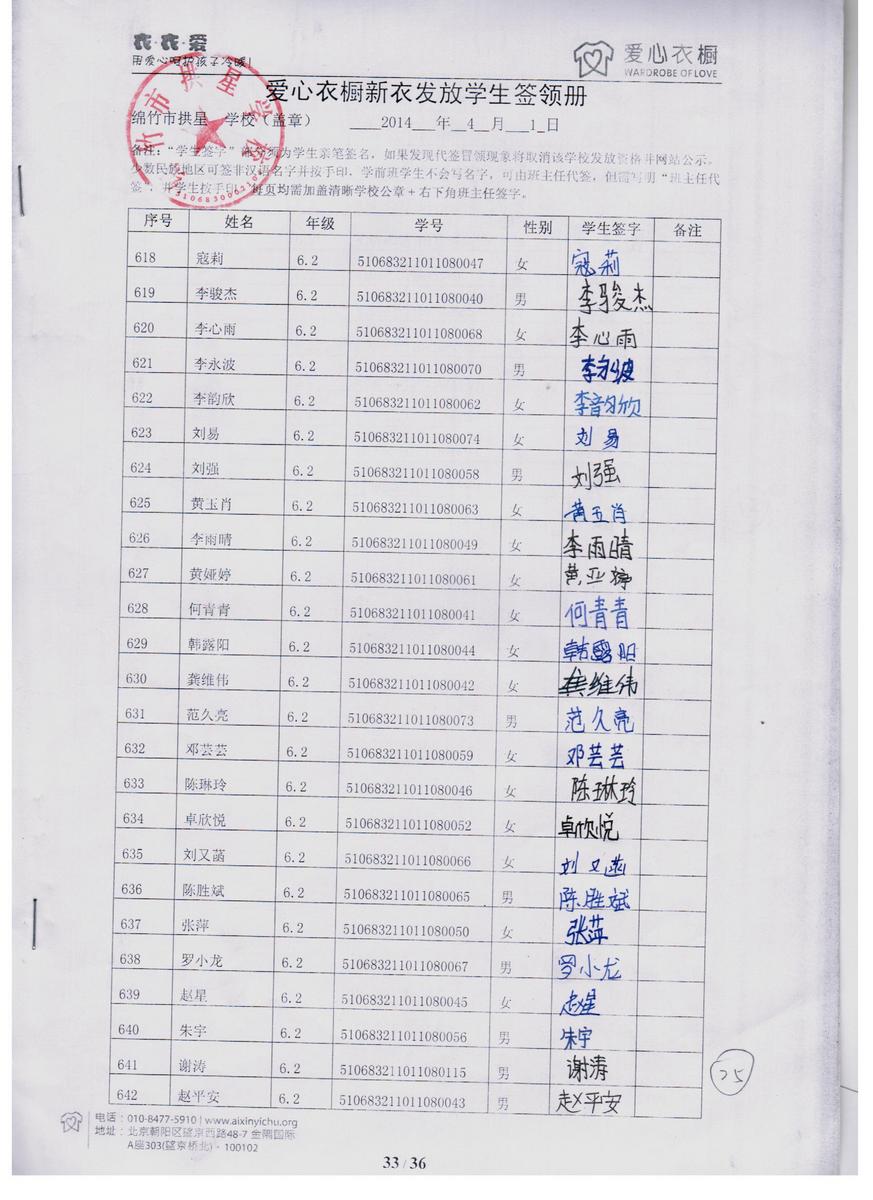 衣·衣·爱
用爱心呵护孩子冷暖!
爱心衣橱
WARDROBE OF LOVE
爱心衣橱新衣发放学生签领册
绵竹市拱星 学校（盖章） 2014 年 4 月 1 日
竹市拱星学校
备注："学生签字"栏必须为学生亲笔签名，如果发现代签冒领现象将取消该学校发放资格并网站公示。
少数民族地区可签非汉语名字并按手印、学前班学生不会写名字，可由班主任代签，但需写明"班主任代
签"，并学生按手印。每页均需加盖清晰学校公章+右下角班主任签字。
序号 姓名 年级 学号 性别 学生签字 备注
618 寇莉 6.2 510683211011080047 女 寇莉
619 李骏杰 6.2 510683211011080040 男 李骏杰
620 李心雨 6.2 510683211011080068 女 李心雨
621 李永波 6.2 510683211011080070 男 李永波
622 李韵欣 6.2 510683211011080062 女 李韵欣
623 刘易 6.2 510683211011080074 女 刘易
624 刘强 6.2 510683211011080058 男 刘强
625 黄玉肖 6.2 510683211011080063 女 黄玉肖
626 李雨晴 6.2 510683211011080049 女 李雨晴
627 黄娅婷 6.2 510683211011080061 女 黄亚婷
628 何青青 6.2 510683211011080041 女 何青青
629 韩露阳 6.2 510683211011080044 女 韩露阳
630 龚维伟 6.2 510683211011080042 女 龚维伟
631 范久亮 6.2 510683211011080073 男 范久亮
632 邓芸芸 6.2 510683211011080059 女 邓芸芸
633 陈琳玲 6.2 510683211011080046 女 陈琳玲
634 卓欣悦 6.2 510683211011080052 女 卓欣悦
635 刘又菡 6.2 510683211011080066 女 刘又菡
636 陈胜斌 6.2 510683211011080065 男 陈胜斌
637 张萍 6.2 510683211011080050 女 张萍
638 罗小龙 6.2 510683211011080067 男 罗小龙
639 赵星 6.2 510683211011080045 女 赵星
640 朱宇 6.2 510683211011080056 男 朱宇
641 谢涛 6.2 510683211011080115 男 谢涛
642 赵平安 6.2 510683211011080043 男 赵平安
25
电话：010-8477-5910 | www.aixinyichu.org
地址：北京朝阳区望京西路48-7 金隅国际
A座303(望京桥北)·100102
33 / 36